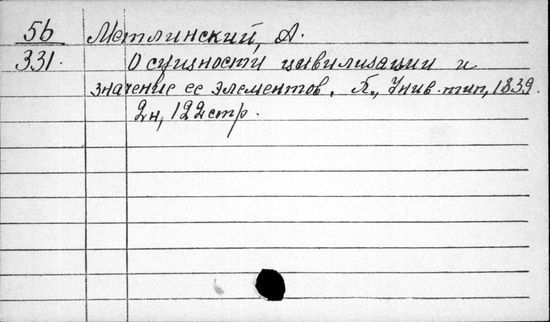 5б Метлинский, А.
331. О сущности цивилизации и
значение ее элементов. Х., Унив. тип., 1839.
2н, 122 стр.